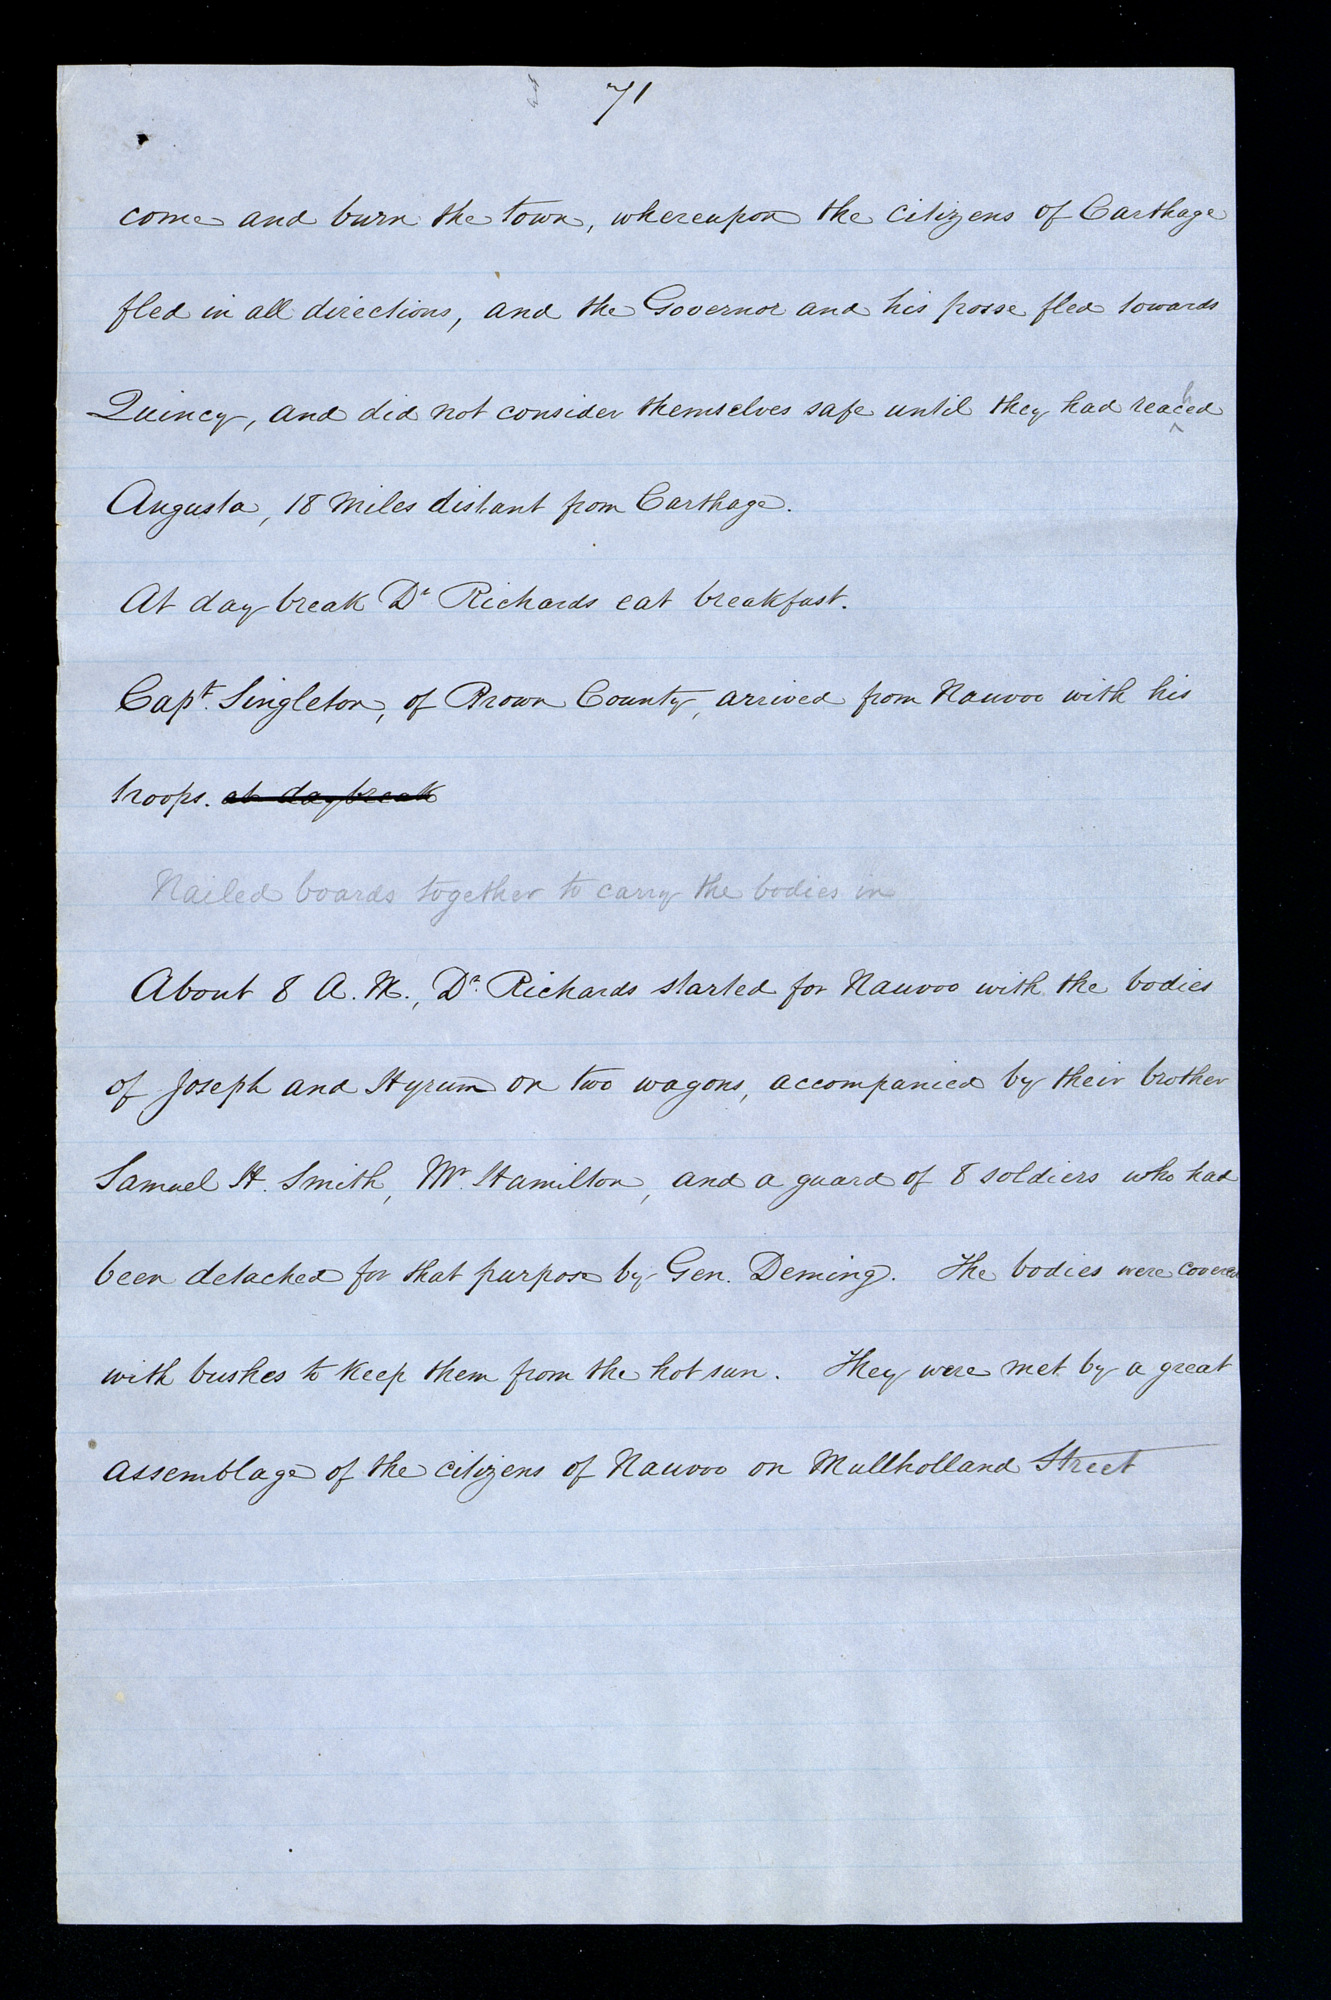 71
come and burn the town, whereupon the citizens of Carthage
fled in all directions, and the Governor and his posse fled towards
Quincy, and did not consider themselves safe until they had reached
Augusta, 18 miles distant from Carthage.
At day break Dr Richards eat breakfast.
Capt. Singleton, of Brown County, arrived from Nauvoo with his
troops. at daybreak
Nailed boards together to carry the bodies in
About 8 A.M., Dr. Richards started for Nauvoo with the bodies
of Joseph and Hyrum on two wagons, accompanied by their brother
Samuel H. Smith, Mr. Hamilton, and a guard of 8 soldiers who had
been detached for that purpose by Gen. Deming. The bodies were covered
with bushes to keep them from the hot sun. They were met by a great
assemblage of the citizens of Nauvoo on Mullholland Street